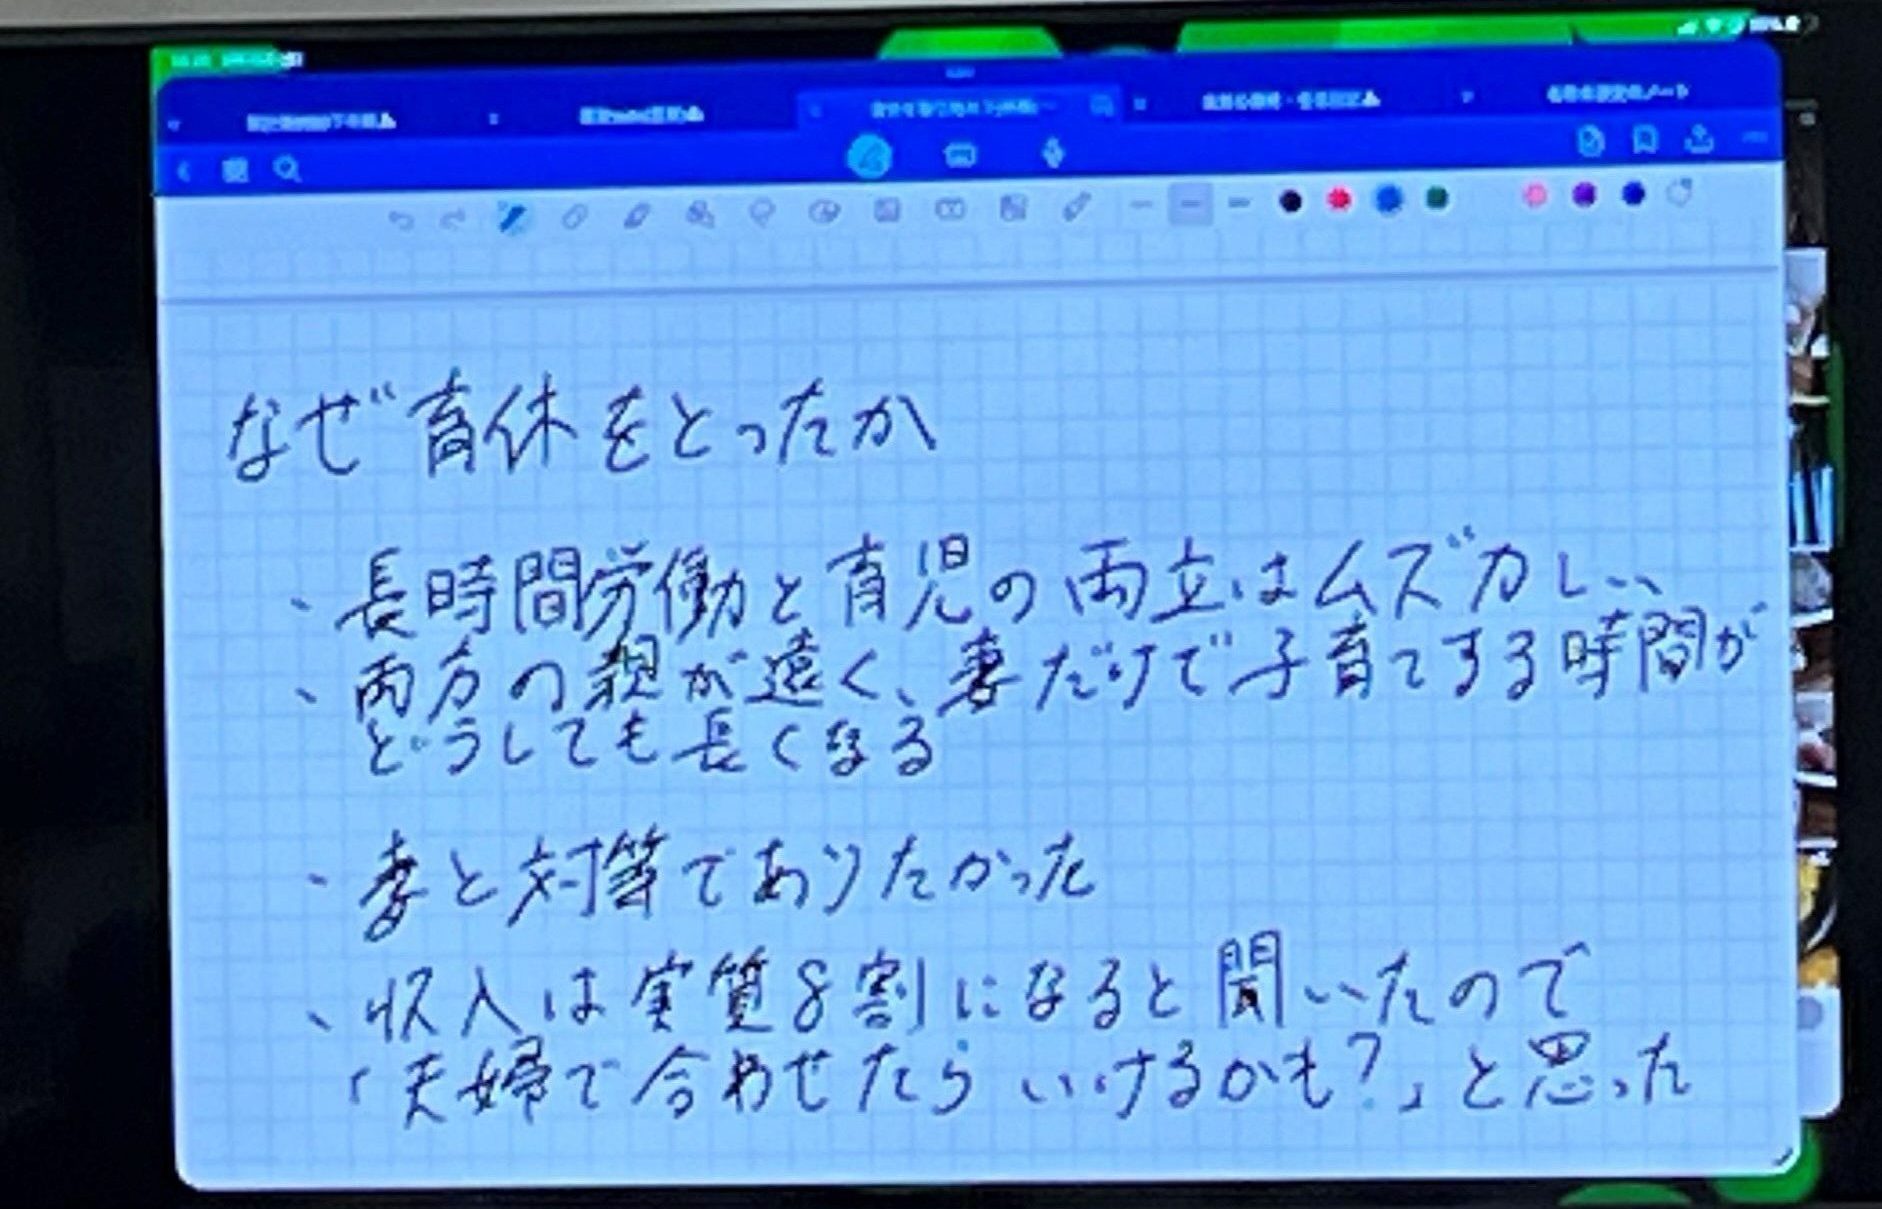 なぜ育休をとったか
・長時間労働と育児の両立はムズカしい
・両方の親が遠く、妻だけで子育てする時間が
どうしても長くなる
・妻と対等でありたかった
・収入は実質8割になると聞いたので
「夫婦で合わせたらいけるかも?」と思った